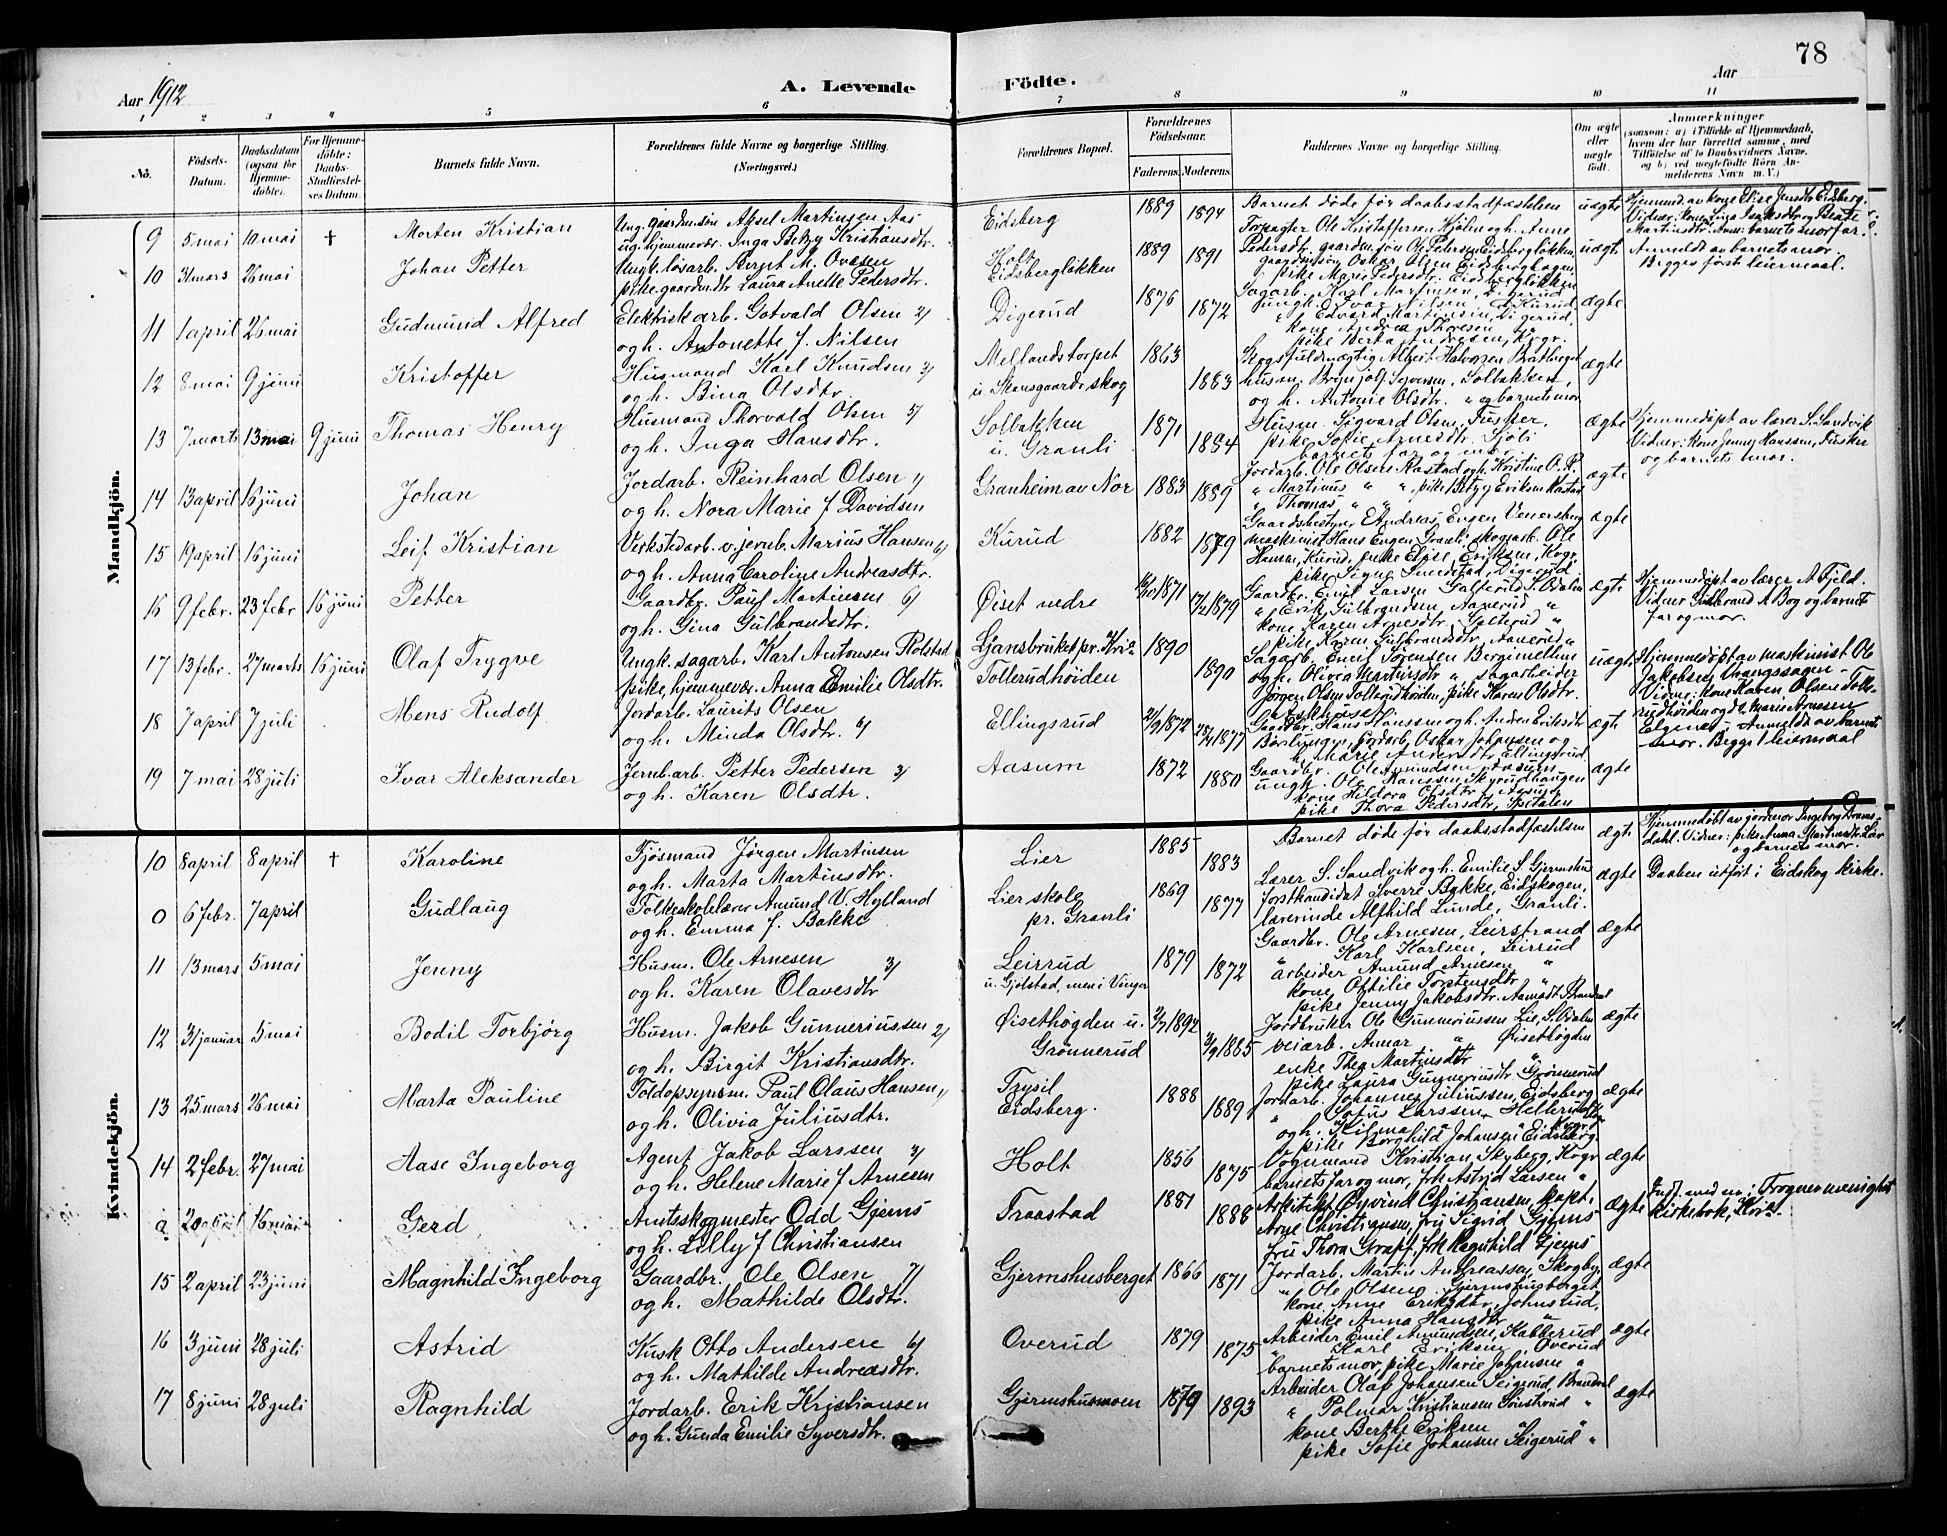 78
Aar 1912
A. Levende
Födte.
Aar
1 2 3 4 5 6 7 8 9 10 11
No.
Födsels-Datum.
Daabsdatum (ogsaa for Hjemme-döbte).
For Hjemme-döbte: Daabs-Stadfæstel-ses Datum.
Barnets fulde Navn.
Forældrenes fulde Navne og borgerlige Stilling. (Næringsvei.)
Forældrenes Bopæl.
Forældrenes Födselsaar.
Faderens. Moderens.
Faddernes Navne og borgerlige Stilling.
Om ægte eller uægte födt.
Anmærkninger
(saasom: a) i Tilfælde af Hjemmedaab, hvem der har forrettet samme, med Tilföielse af to Daabsvidners Navne, og b) ved uægtefödte Börn An-melderens Navn m. V.)
Mandkjön.
9 5 mai 10 mai † Morten Kristian
Ung. gaardm.sön Aksel Martinsen Aas
ug. hjemmevær. Inga Betzy Kristiansdtr.
Eidsberg 1889 1894
Barnet døde før daabsstadfæstelsen uægte
10 31 mars 26 mai Johan Petter
Ungk. løsarb. Bernt M. Ovesen
pike gaardm.dtr Laura Anette Pedersdtr.
Holt
Eidsbergløkken 1889 1891
Forpagter Ole Kristoffersen Hjølm og h. Anne
Pedersdtr. gaardm.søn Ole Pedersen Eidsbergløkken,
pike Marie Pedersdtr. Eidsbergløkken
uægt Anmeldt av barnets mor.
Begges første leiermaal.
11 1 april 26 mai Gudmund Alfred
Elektriskarb. Gotvald Olsen 2/
og h. Antonette f. Nilsen
Digerud 1876 1872
Sagarb. Karl Martinsen, Digerud
ægte
12 8 mai 9 juni Kristoffer
Husmand Karl Knudsen 3/
og h. Bina Olsdtr.
Mellandstorpet
u. Skansgaards skog 1863 1883
og h. Antonie Olsdtr. " og barnets mor
ægte
13 7 marts 13 mai 9 juni Thomas Henry
Husmand Thorvald Olsen 5/
og h. Inga Hansdtr.
Solbakken
u. Granli 1871 1884
Husm. Sigvard Olsen, Fusker,
pike Sofie Arnesdtr. Sjøli
barnets far og mor
ægte Hjemmedøpt av lærer S. Sandvik
Vidner: Kone Jenny Hanssen, Fusker
og barnets mor.
14 13 april 16 juni Johan
Jordarb. Reinhard Olsen 1/
og h. Nora Marie f Davidsen
Granheim av Nor 1883 1889
Jordarb. Ole Olsen Rastad og h. Kristine O. R.
" Martinus " ", pike Betzy Eriksen Rastad
" Thomas " "
ægte
15 19 april 16 juni Leif Kristian
Verkstedarb. v. jernb. Marius Hansen 6/
og h. Anna Caroline Andreasdtr.
Kurud 1882 1879
Gaardsbestyrer Andreas Engen Venersberg
maskinist Hans Engen Granli, skogarb. Ole
Hansen, Kurud, pike Elise Eriksen, Kogr.
pike Signe Smedstad, Digerud
ægte
16 9 febr. 23 febr 16 juni Petter
Gaardbr. Paul Martinsen 6/
og h. Gina Gulbrandsdtr.
Øiset nedre
Gaardbr. Emil Larsen Galterud S. Odalen
" Erik Gulbrandsen, Aanerud "
kone Karen Arnesdtr. Galterud "
pike Karen Gulbrandsdtr, Aanerud "
ægte Hjemmedøpt av lærer A Fjeld.
Vidner Gulbrand A Bog og barnets
far og mor.
17 13 febr. 27 marts 16 juni Olaf Trygve
Ungk. sagarb. Karl Antonsen Rolstad
pike, hjemmevær. Anna Emilie Olsdtr.
Ljansbruket pr. Kr.a
Tollerudhøiden 1890 1890
Sagarb. Emil Sørensen Bergimellem
og h. Olivia Martinsdtr ", sagarbeider
Jørgen Olsen Tollerudhøiden, pike Karen Olsdtr.
uægt. Hjemmedøpt av maskinist Ole
Jakobsen, Vrangssagen
Vidner: Kone Karen Olsen Tolle-
rudhøiden og do Marie Arnesen
Elgenes. Anmeldt av barnets
mor. Begge 1 leiermaal
18 7 april 7 juli Mens Rudolf
Jordarb. Laurits Olsen
og h. Minda Olsdtr. 6/
Ellingsrud 21/9 1872 23/1 1877
Gaardbr. Hans Hanssen og h. Anden Eriksdtr
ægt
19 7 mai 28 juli Ivar Aleksander
Jernb.arb. Petter Pedersen 3/
og h. Karen Olsdtr.
Aasum 1872 1880
Gaardbr. Ole Amundsen Aasum
ungk. Ole Hanssen, Skyrudhaugen
kone Hildora Olsdtr, Aasum
pike Thora Pedersdtr, Spitalen
ægte
Kvindekjön.
10 8 april 8 april † Karoline
Fjøsmand Jørgen Martinsen
og h. Marta Martinsdtr.
Lier 1885 1883
Barnet døde før daabsstadfæstelsen ægte
Hjemmedøbt av jordemor Ingeborg Drams-
dahl. Vidner: pike Anna Martinsdtr Lier
og barnets mor.
0 6 febr. 7 april Gudlaug
Folkeskolelærer Amund V. Hylland
og h. Emma f. Bakke
Lier skole
pr. Granli 1869 1877
Lærer S. Sandvik og h. Emilie S. Gjermshus
forstkandidat Sverre Bakke, Eidskogen,
lærerinde Alfhild Lunde, Granli.
ægte Daaben utført i Eidskog kirke.
11 13 mars 5 mai Jenny
Husm. Ole Arnesen 3/
og h. Karen Olavesdtr
Leirrud
u. Gjølstad, men i Vinger 1879 1872
Gaardbr. Ole Arnesen, Leirstrand
" Karl Karlsen, Leirrud
arbeider Amund Arnesen "
kone Ottilie Torstensdtr "
pike Jenny Jakobsdtr. Aamodt Strandsal
ægte
12 31 januar 5 mai Bodil Torbjørg
Husm. Jakob Gunneriussen 2/
og h. Birgit Kristiansdtr.
Øisethøgden u.
Grønnerud 2/7 1892 3/9 1885
Jordbruker Ole Gunneriussen Lie, S. Odalen
veiarb. Annar " Øisethøgden
enke Thea Martinsdtr "
pike Laura Gunneriusdtr Grønnerud
ægte
13 25 mars 26 mai Marta Pauline
Toldopsynsm. Paul Olaus Hansen 1/
og h. Olivia Juliusdtr.
Trysil
Eidsberg. 1888 1889
Jordarb. Johannes Juliussen, Eidsberg
" Sofus Larssen Hellerud
og h. Hilma " "
pike Borghild Johansen Eidsberg
ægte
14 2 febr. 27 mai Aase Ingeborg
Agent Jakob Larssen 3/
og h. Helene Marie f Arnesen
Holt 1856 1875
Vognmand Kristian Skyberg, Kogr
barnets far og mor, frk Astrid Larsen "
ægte
a 20 april 16 mai Gerd
Amtsskogmester Odd Gjems
og h. Lilly f Christiansen
Traastad 1881 1888
Arkitekt Øyvind Christiansen, kapt.
Arne Christiansen, fru Sigrid Gjems
fru Thora Grapf, frk Ragnhild Gjems
ægte Indf. med nr. i Frogner menighet
kirkebok, Kr.a
15 2 april 23 juni Magnhild Ingeborg
Gaardbr. Ole Olsen 7/
og h. Mathilde Olsdtr.
Gjermshusberget 1866 1871
Jordarb. Martin Andreassen, Skogby,
" Ole Olsen Gjermshusberget
kone Anne Eriksdtr, Johnsrud,
pike Anna Hansdtr "
ægte
16 3 juni 28 juli Astrid
Kusk Otto Andersen 6/
og h. Mathilde Andreasdtr.
Overud 1879 1875
Arbeider Emil Amundsen, Kabberud
" Karl Eriksen Overud
barnets mor, pike Marie Johansen "
ægte
17 8 juni 28 juli Ragnhild
Jordarb. Erik Kristiansen
og h. Gunda Emilie Syversdtr.
Gjermshusmoen 1879 1893
Arbeider Olaf Johansen Seigerud, Brandval
" Palmar Kristiansen Tonstrud "
kone Berthe Eriksen "
pike Sofie Johansen Seigerud "
ægte